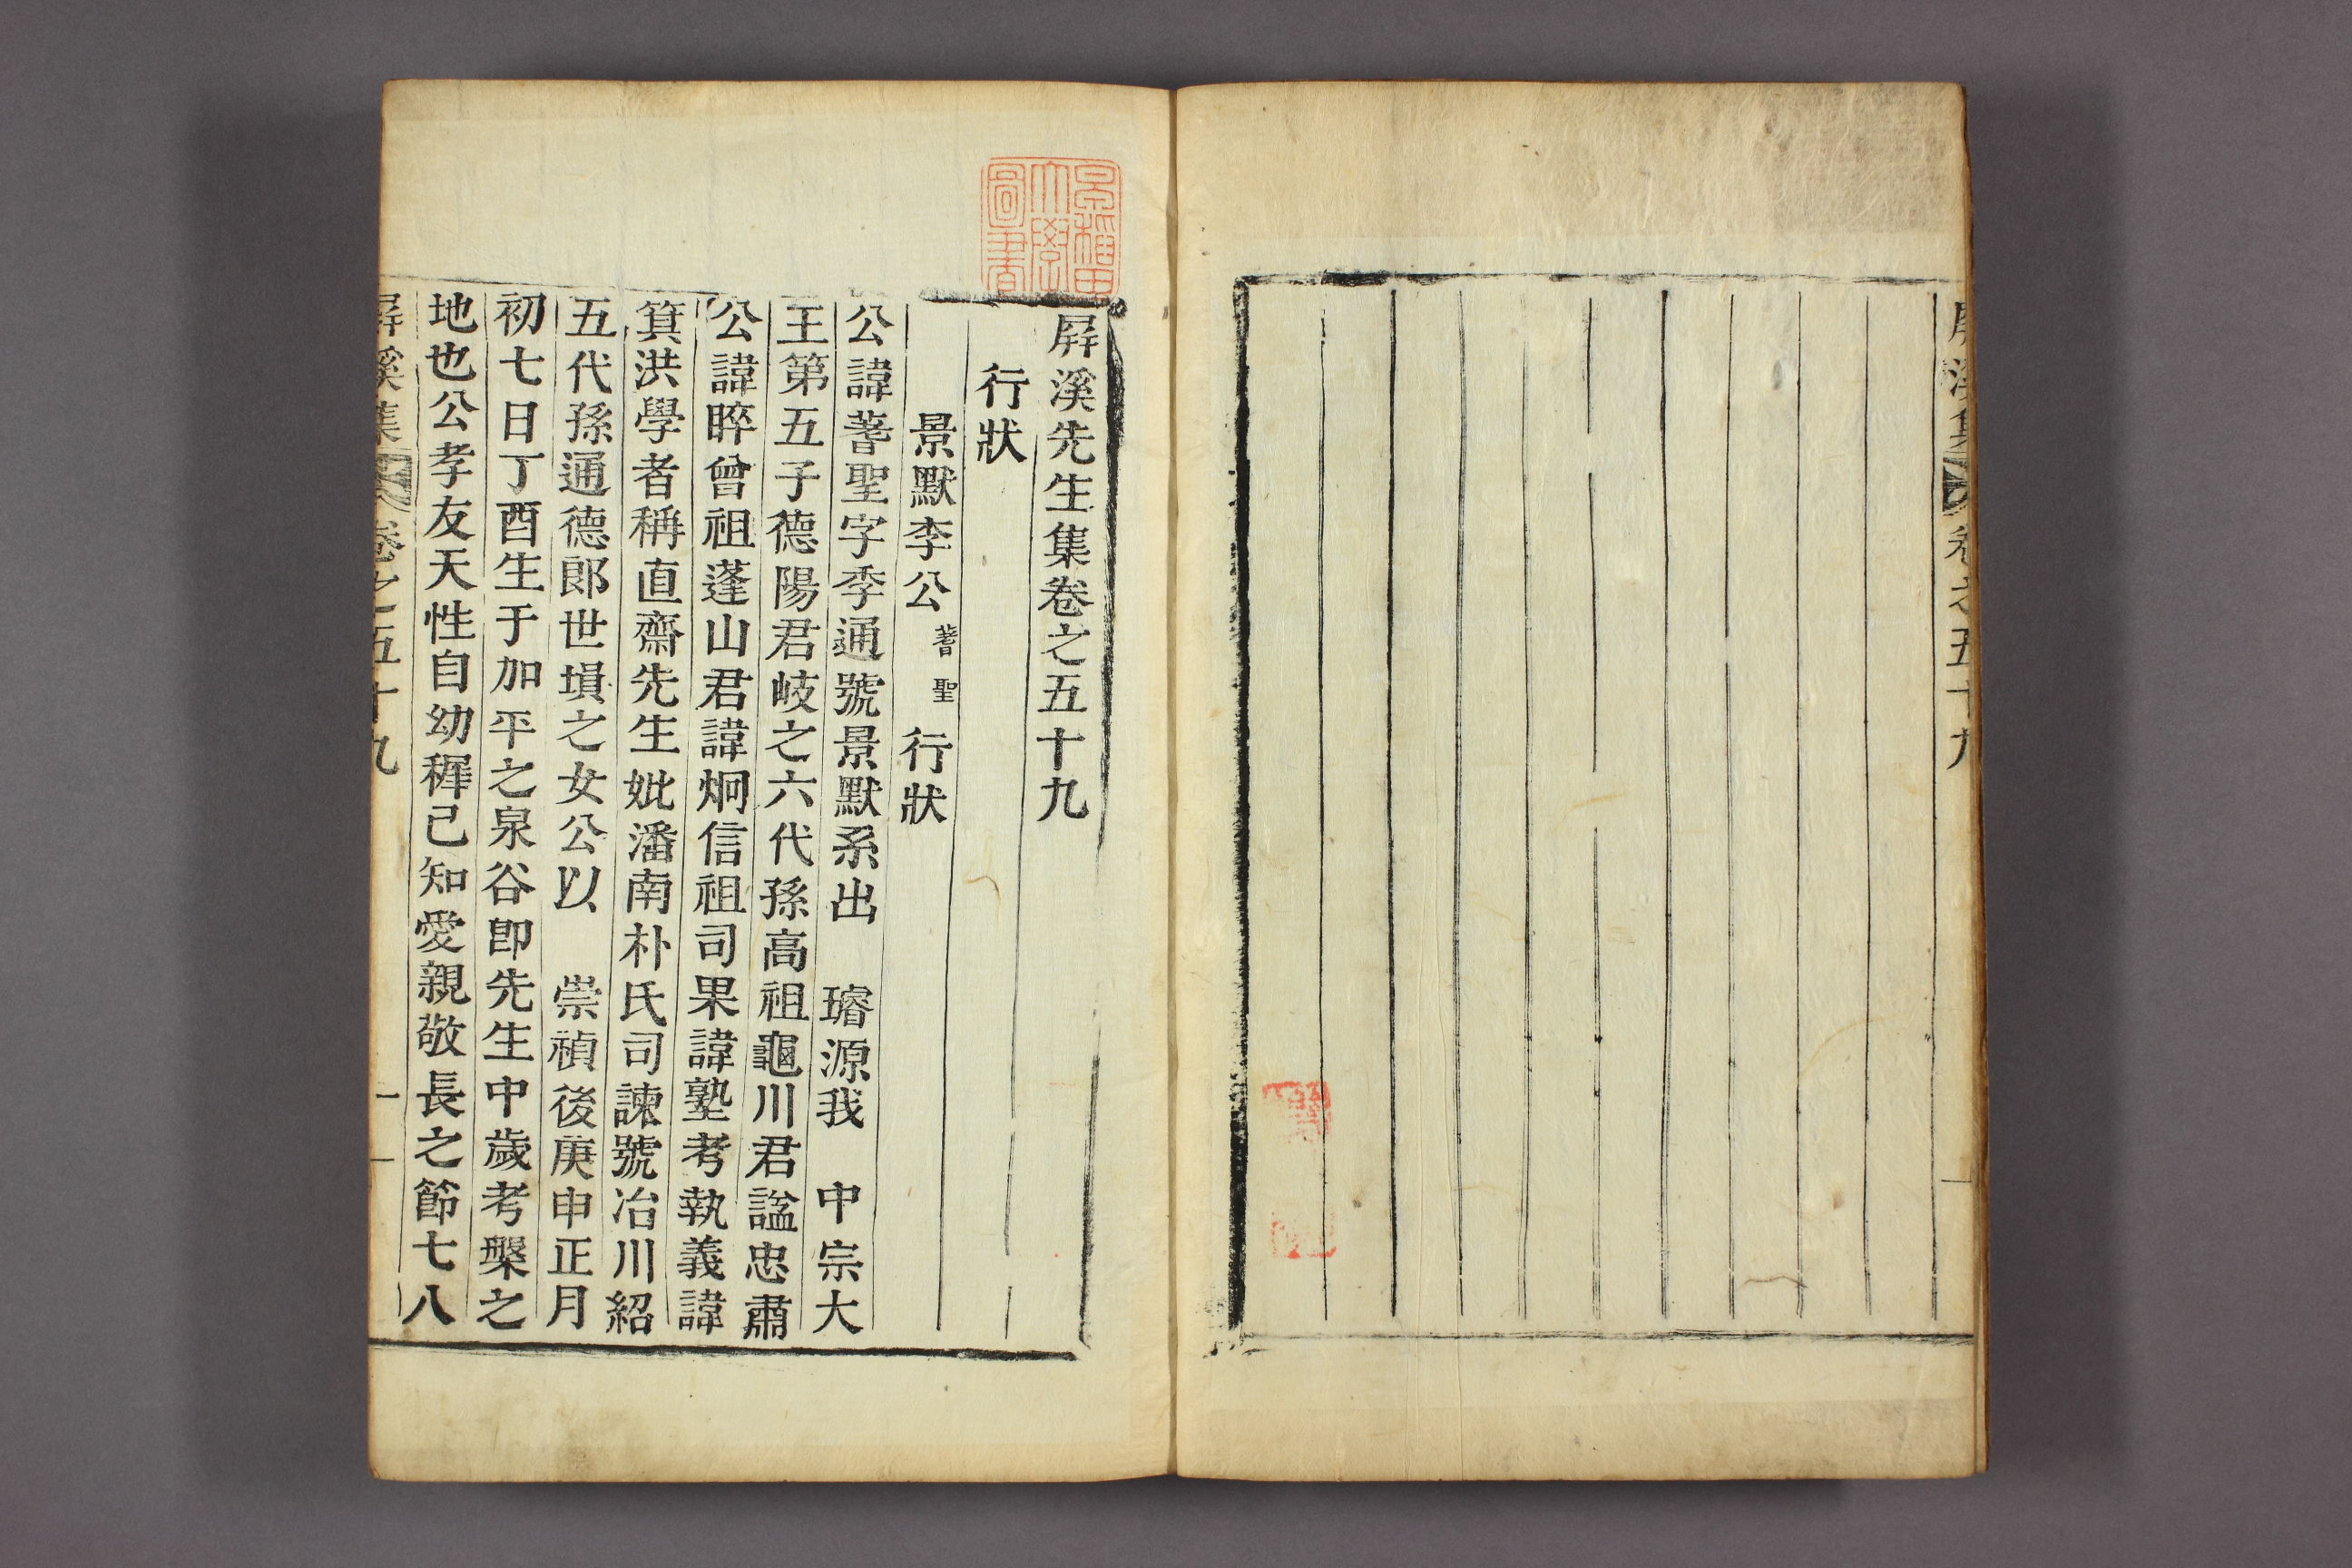 屛溪集 卷之五十九
早稻田大學圖書
屛溪先生集卷之五十九
行狀
景默李公蓍聖行狀
公諱蓍聖字季通號景默系出 璿源我 中宗大
王第五子德陽君岐之六代孫高祖龜川君諡忠肅
公諱睟曾祖蓬山君諱炯信祖司果諱塾考執義諱
箕洪學者稱直齋先生妣潘南朴氏司諫號冶川紹
五代孫通德郎世塤之女公以 崇禎後庚申正月
初七日丁酉生于加平之泉谷卽先生中歲考槃之
地也公孝友天性自幼穉已知愛親敬長之節七八
屛溪集 卷之五十九 一